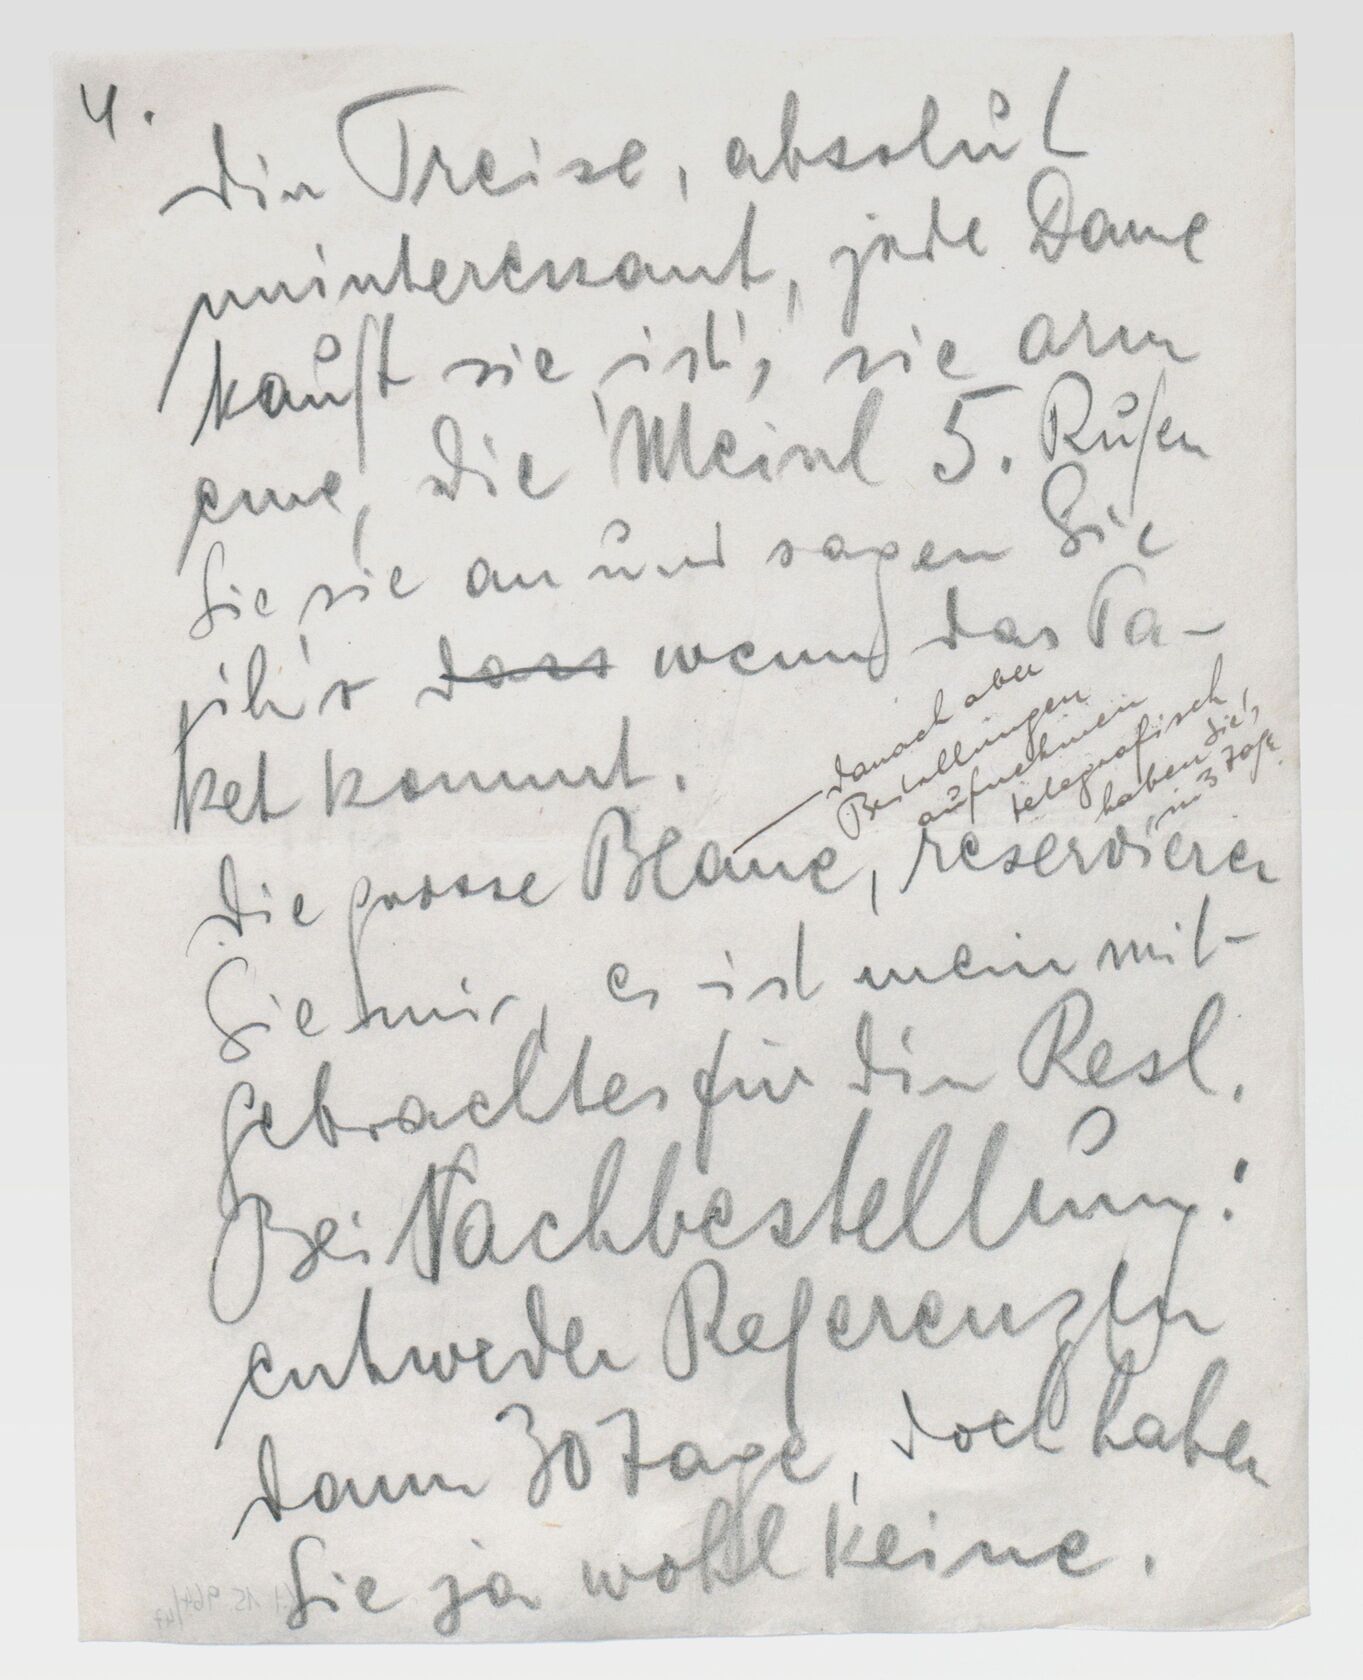 4.
die Preise, absolut
uninteressant, jede Dame
kauft sie ist's, sie
eine, die Meinl 5. Rufen
Sie sie an und sagen Sie
ihr's dass wenn das Pa-
ket kommt.
— danach aber
Bestellungen
aufnehmen
telegrafisch
haben Sie's,
in 3 Tage.
Die grosse Blaue, reservieren
Sie mir, es ist mein mit-
gebrachtes für die Resl.
Bei Nachbestellung:
entweder Referenzen
dann 30 Tage, doch haben
Sie ja wohl keine.